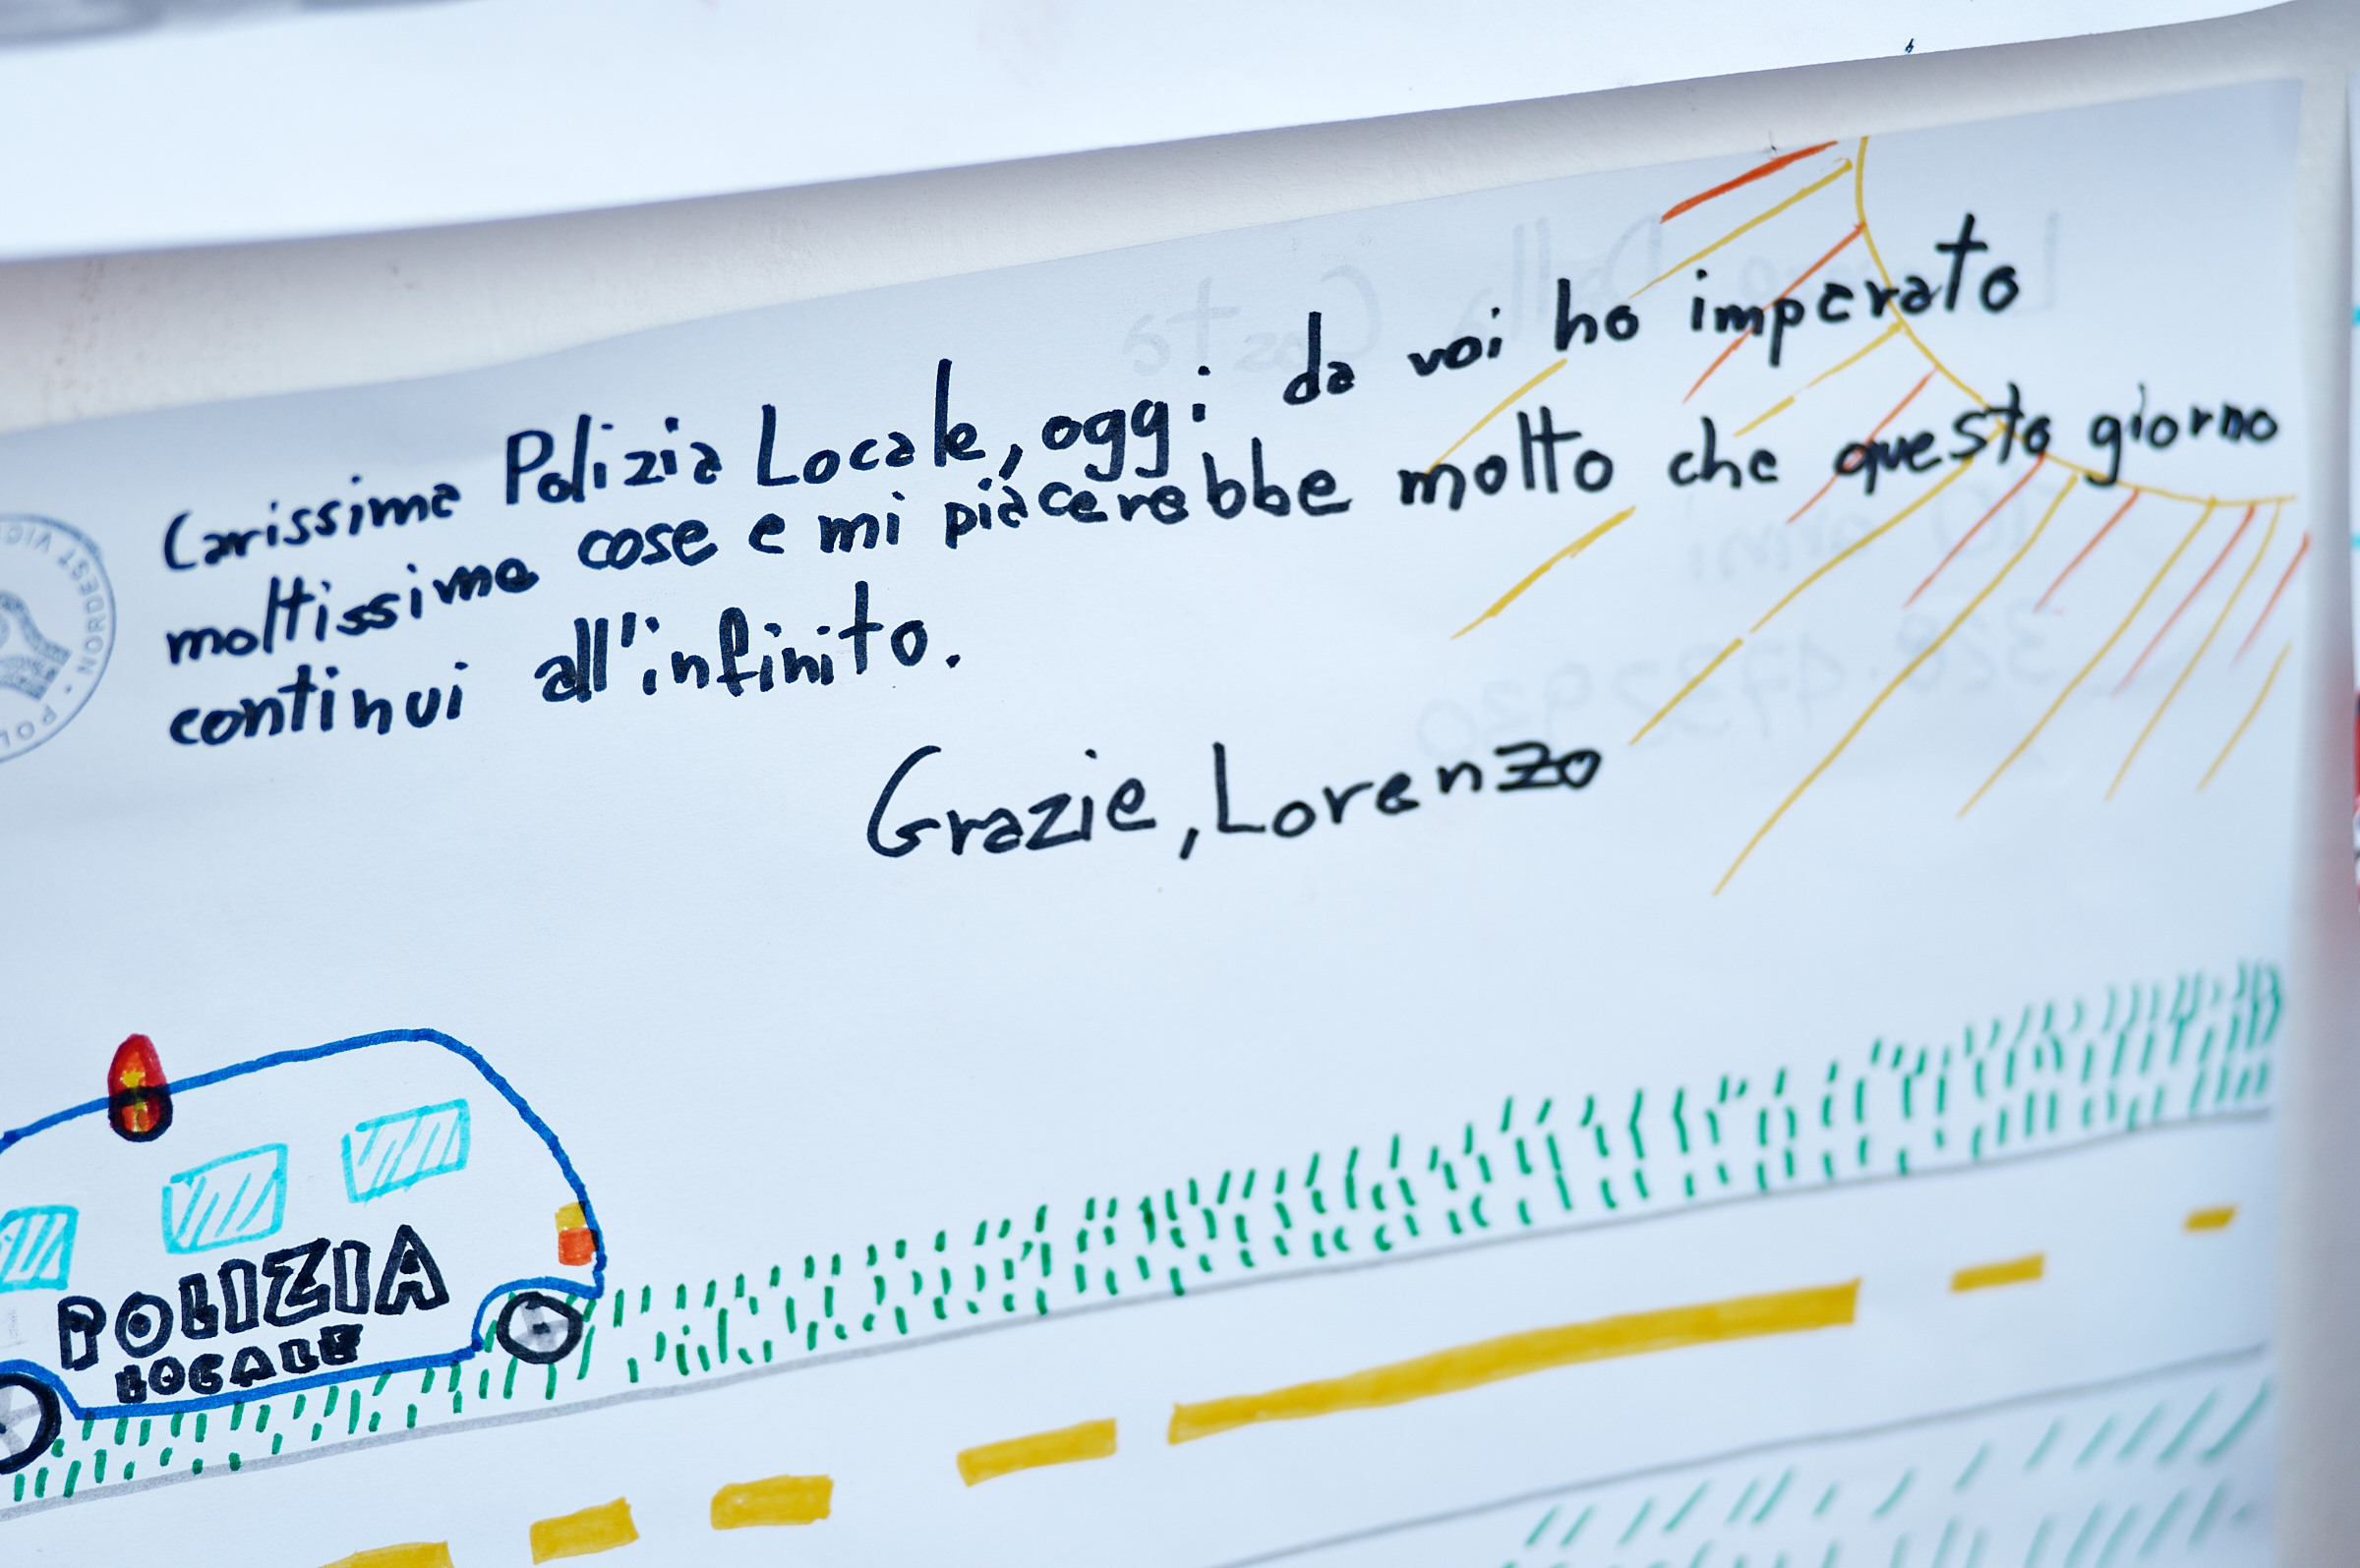 Carissima Polizia Locale, oggi da voi ho imperato
moltissime cose e mi piacerebbe molto che questo giorno
continui all'infinito.
Grazie, Lorenzo
POLIZIA
LOCALE
NORDEST VIC
POL